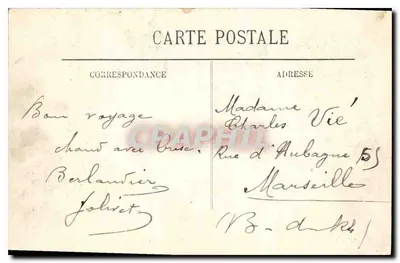 CARTE POSTALE
CORRESPONDANCE
ADRESSE
Bon voyage
chaud avec brise.
Berlandier
Jolivet
Madame
Charles Vié
Rue d'Aubagne 55
Marseille
(B-du-R)
CPAPHIL